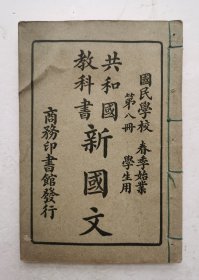 國民學校 春季始業
第八冊 學生用
共和國
教科書
新國文
商務印書館發行